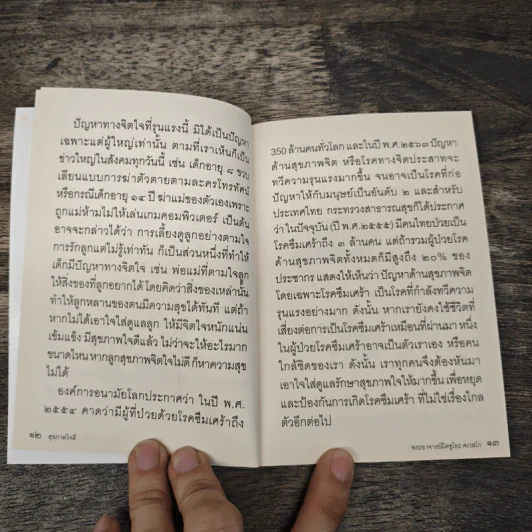 ปัญหาทางจิตใจที่รุนแรงนี้ มิได้เป็นปัญหา
เฉพาะแต่ผู้ใหญ่เท่านั้น ตามที่เราเห็นก็เป็น
ข่าวใหญ่ในสังคมทุกวันนี้ เช่น เด็กอายุ ๘ ขวบ
เลียนแบบการฆ่าตัวตายตามละครโทรทัศน์
หรือกรณีเด็กอายุ ๑๔ ปี ฆ่าแม่ของตัวเองเพราะ
ถูกแม่ห้ามไม่ให้เล่นเกมคอมพิวเตอร์ เป็นต้น
อาจจะกล่าวได้ว่า การเลี้ยงดูลูกอย่างตามใจ
การรักลูกแต่ไม่รู้เท่าทัน ก็เป็นส่วนหนึ่งที่ทำให้
เด็กมีปัญหาทางจิตใจ เช่น พ่อแม่ที่ตามใจลูก
ให้สิ่งของที่ลูกอยากได้ โดยคิดว่าสิ่งของเหล่านั้น
ทำให้ลูกหลานของตนมีความสุขได้ทันที แต่ถ้า
หากไม่ได้เอาใจใส่ดูแลลูก ให้มีจิตใจหนักแน่น
เข้มแข็ง มีสุขภาพใจดีแล้ว ไม่ว่าจะให้อะไรมาก
ขนาดไหน หากลูกสุขภาพจิตใจไม่ดี ก็หาความสุข
ไม่ได้
องค์การอนามัยโลกประกาศว่า ในปี พ.ศ.
๒๕๕๔ คาดว่ามีผู้ที่ป่วยด้วยโรคซึมเศร้าถึง
๑๒ สุขภาพใจดี
350 ล้านคนทั่วโลก และในปี พ.ศ.๒๕๖๓ ปัญหา
ด้านสุขภาพจิต หรือโรคทางจิตประสาทจะ
ทวีความรุนแรงมากขึ้น จนอาจเป็นโรคที่ก่อ
ปัญหาให้กับมนุษย์เป็นอันดับ ๒ และสำหรับ
ประเทศไทย กระทรวงสาธารณสุขก็ได้ประกาศ
ว่า ในปัจจุบัน (ปี พ.ศ. ๒๕๕๕) มีคนไทยป่วยเป็น
โรคซึมเศร้าถึง ๓ ล้านคน แต่ถ้ารวมผู้ป่วยโรค
ด้านสุขภาพจิตทั้งหมดก็มีสูงถึง ๒๐% ของ
ประชากร แสดงให้เห็นว่า ปัญหาด้านสุขภาพจิต
โดยเฉพาะโรคซึมเศร้า เป็นโรคที่กำลังทวีความ
รุนแรงอย่างมาก ดังนั้น หากเรายังคงใช้ชีวิตที่
เสี่ยงต่อการเป็นโรคซึมเศร้าเหมือนที่ผ่านมา หนึ่ง
ในผู้ป่วยโรคซึมเศร้าอาจเป็นตัวเราเอง หรือคน
ใกล้ชิดของเรา ดังนั้น เราทุกคนจึงต้องหันมา
เอาใจใส่ดูแลรักษาสุขภาพใจให้มากขึ้น เพื่อหยุด
และป้องกันการเกิดโรคซึมเศร้า ที่ไม่ใช่เรื่องไกล
ตัวอีกต่อไป
พระอาจารย์มิตซูโอะ คเวสโก ๑๓